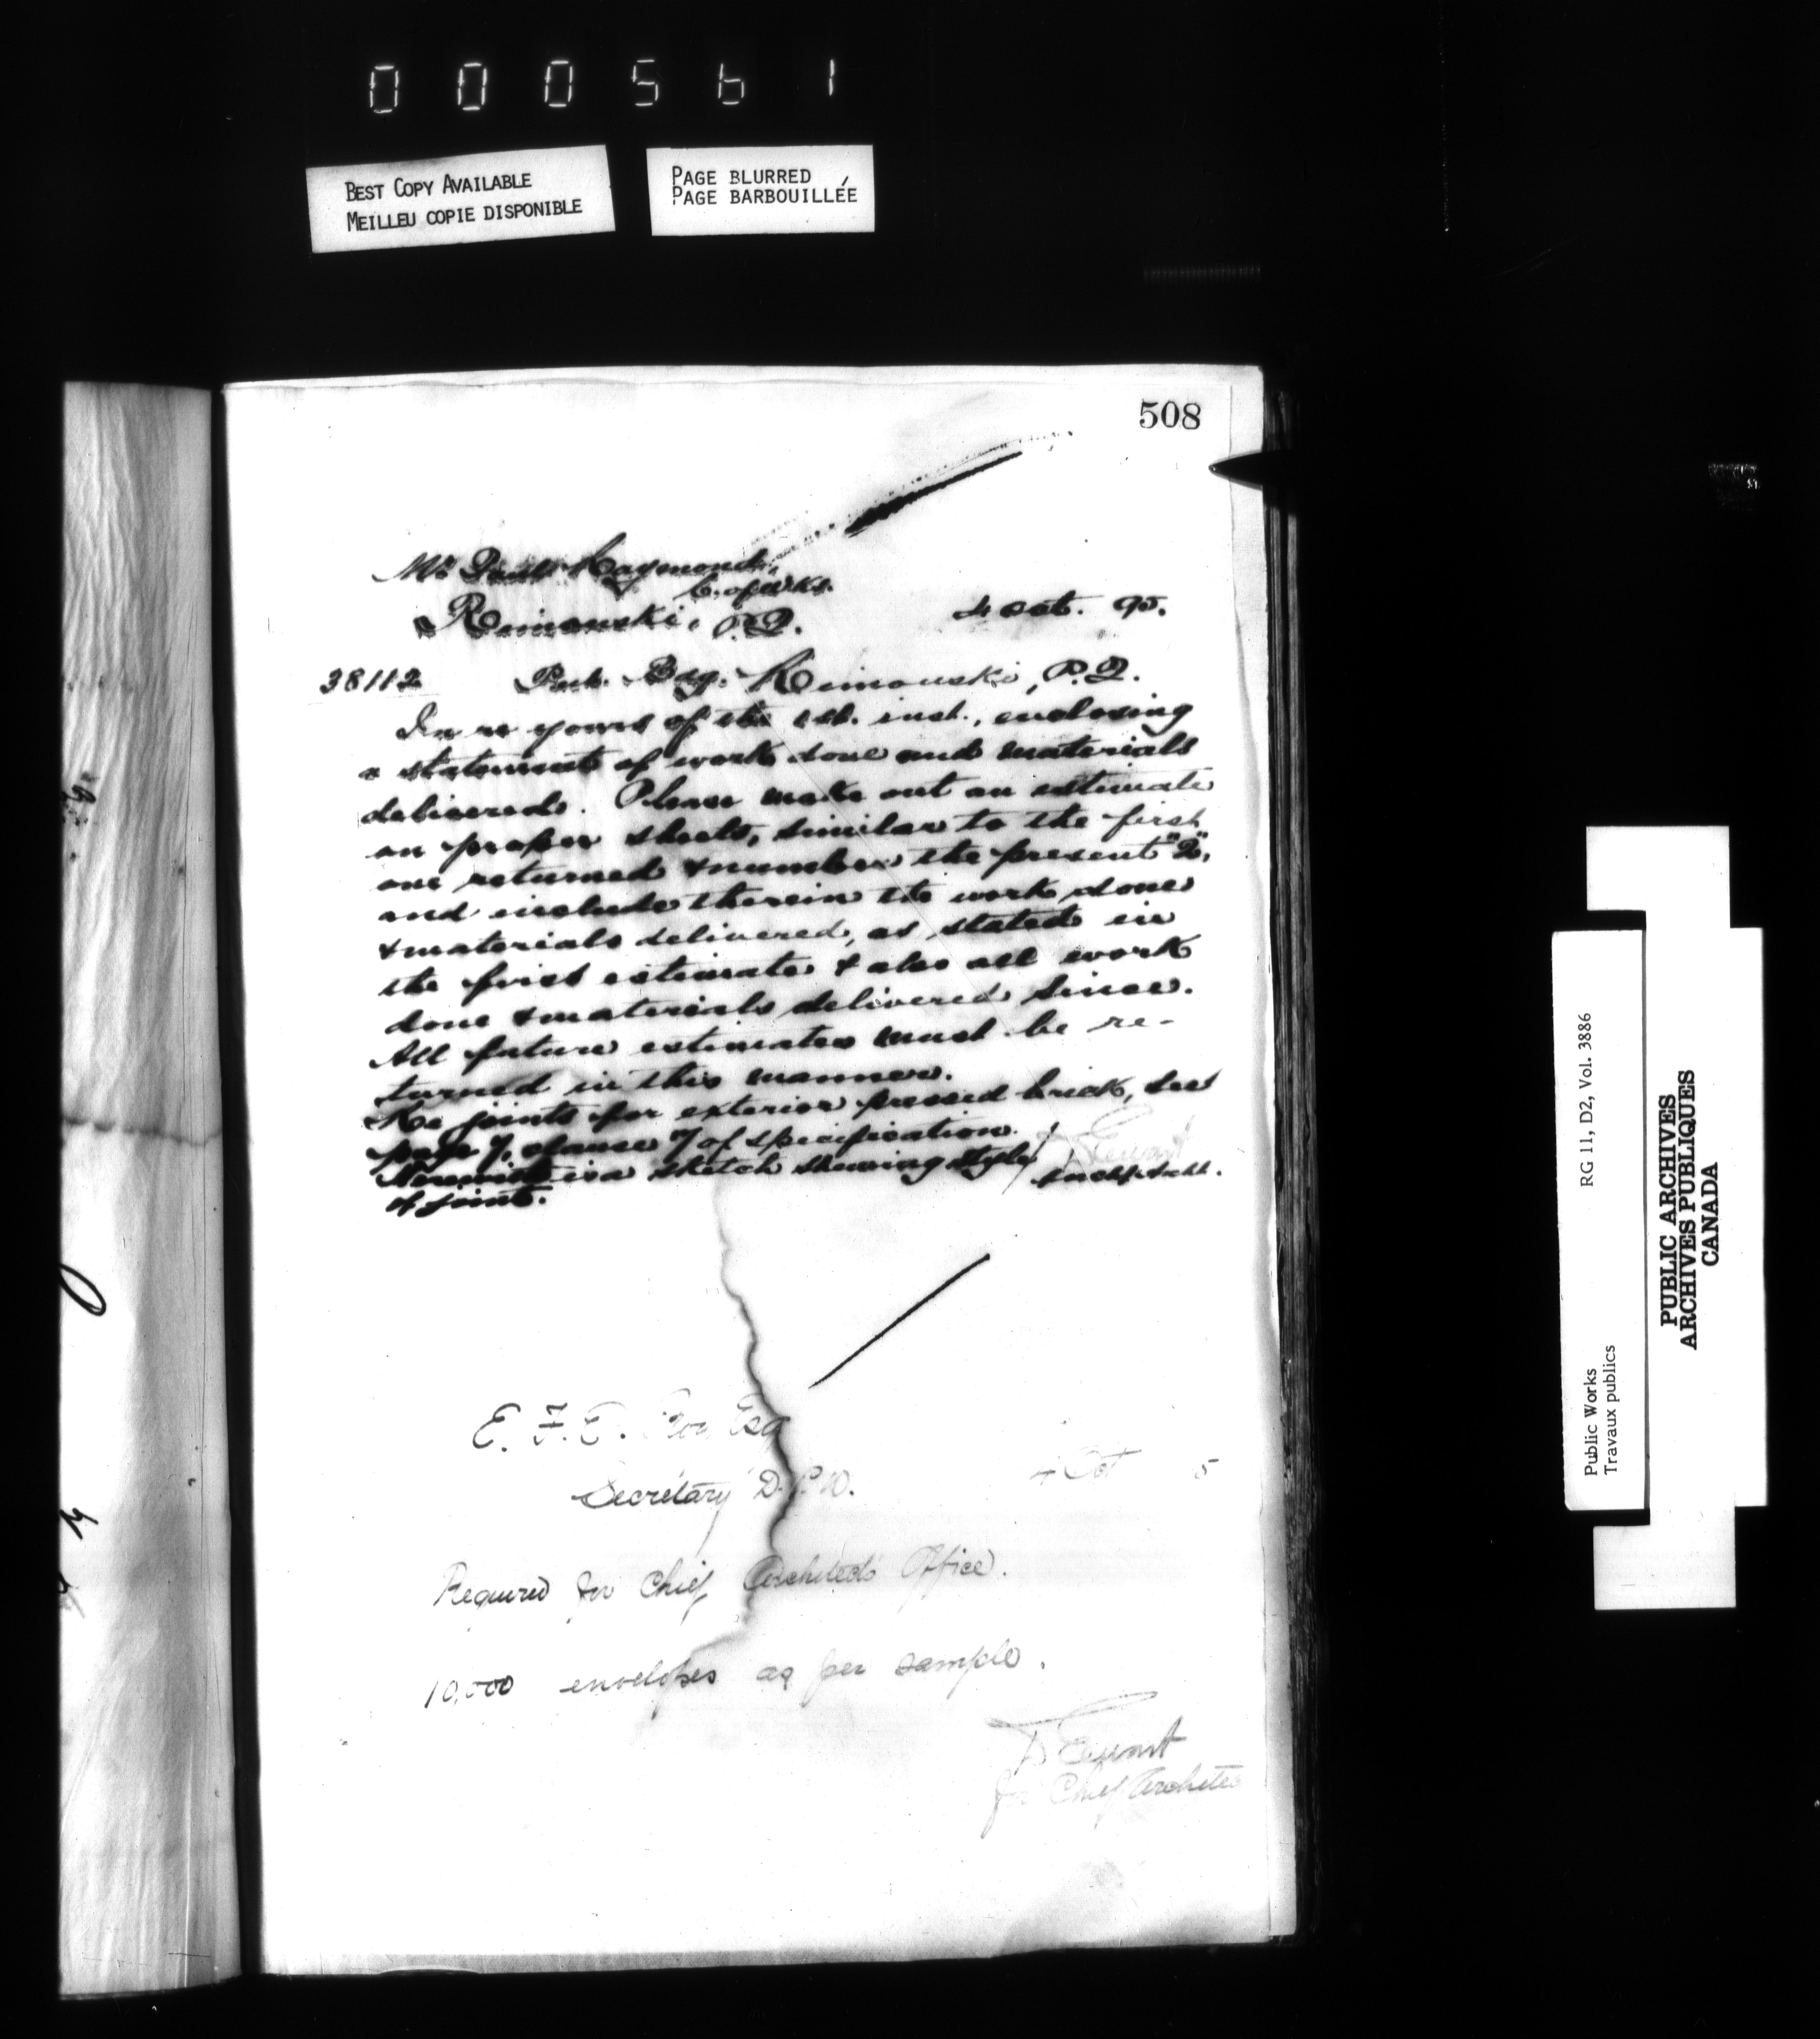 000561
BEST COPY AVAILABLE
MEILLEU COPIE DISPONIBLE
PAGE BLURRED
PAGE BARBOUILLÉE
508
Mr. Raymond,
C. of Wks.
Rimouski, P.Q. 4 Oct. 95.
38112 Pub. Bdg. Rimouski, P.Q.
In re yours of the 1st. inst., enclosing
a statement of work done and materials
delivered. Please make out an estimate
on proper sheets, similar to the first
one returned & number the present "2",
and include therein the work done
& materials delivered, as stated in
the first estimate & also all work
done & materials delivered since.
All future estimates must be re-
turned in this manner.
Re joints for exterior pressed brick, see
page 7, clause 7 of specification.
Herewith is a sketch shewing style
of joint.
D Ewart
E. F. E. Roy Esq
Secretary D.P.W. 4 Oct 5
Required for Chief Architects Office.
10,000 envelopes as per sample.
D Ewart
for Chief Architec
Public Works
Travaux publics
RG 11, D2, Vol. 3886
PUBLIC ARCHIVES
ARCHIVES PUBLIQUES
CANADA